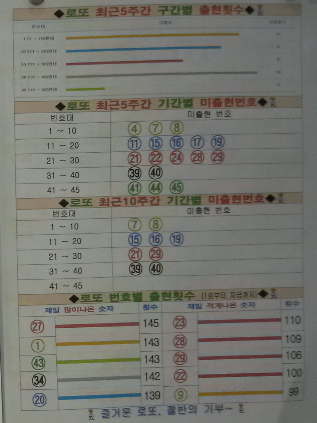 ◆로또 최근5주간 구간별 출현횟수◆
◆로또 최근5주간 기간별 미출현번호◆
번호대 미출현 번호
1 ~ 10 4 7 8
11 ~ 20 11 15 16 17 19
21 ~ 30 21 22 24 28 29
31 ~ 40 39 40
41 ~ 45 41 44 45
◆로또 최근10주간 기간별 미출현번호◆
번호대 미출현 번호
1 ~ 10 7 8
11 ~ 20 15 16 19
21 ~ 30 21 29
31 ~ 40 39 40
41 ~ 45
◆로또 번호별 출현횟수 (1회부터 지금까지)◆
제일 많이나온 숫자 횟수 제일 적게나온 숫자 횟수
27 145 23 110
1 143 28 109
43 143 29 106
34 142 22 100
20 139 9 99
즐거운 로또, 절반의 기부~